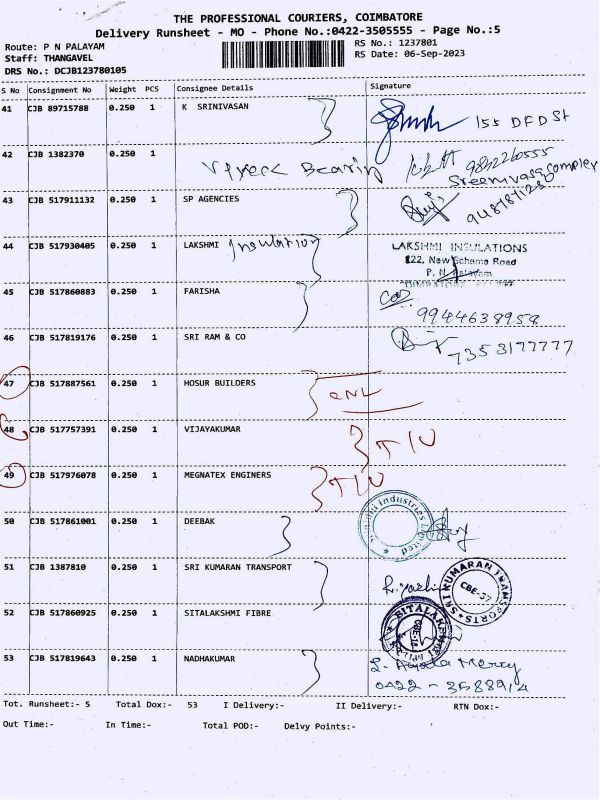 THE PROFESSIONAL COURIERS, COIMBATORE
Delivery Runsheet - MO - Phone No.:0422-3505555 - Page No.:5
Route: P N PALAYAM
RS No.: 1237801
Staff: THANGAVEL
RS Date: 06-Sep-2023
DRS No.: DCJB123780105
S No Consignment No Weight PCS Consignee Details Signature
41 CJB 89715788 0.250 1 K SRINIVASAN 155 DFD St
42 CJB 1382370 0.250 1
Sreenivasa complex
43 CJB 517911132 0.250 1 SP AGENCIES
44 CJB 517930405 0.250 1 LAKSHMI Insulation
LAKSHMI INSULATIONS
122, New Scheme Road
P. N. Palayam
45 CJB 517860883 0.250 1 FARISHA
9944638958
46 CJB 517819176 0.250 1 SRI RAM & CO
7353177777
47 CJB 517887561 0.250 1 HOSUR BUILDERS
48 CJB 517757391 0.250 1 VIJAYAKUMAR
49 CJB 517976078 0.250 1 MEGNATEX ENGINERS
Industries Limited
50 CJB 517861001 0.250 1 DEEBAK
51 CJB 1387810 0.250 1 SRI KUMARAN TRANSPORT
SRI KUMARAN TRANSPORTS
52 CJB 517860925 0.250 1 SITALAKSHMI FIBRE
53 CJB 517819643 0.250 1 NADHAKUMAR
Mercy
Tot. Runsheet:- 5 Total Dox:- 53 I Delivery:- II Delivery:- RTN Dox:-
Out Time:- In Time:- Total POD:- Delvy Points:-